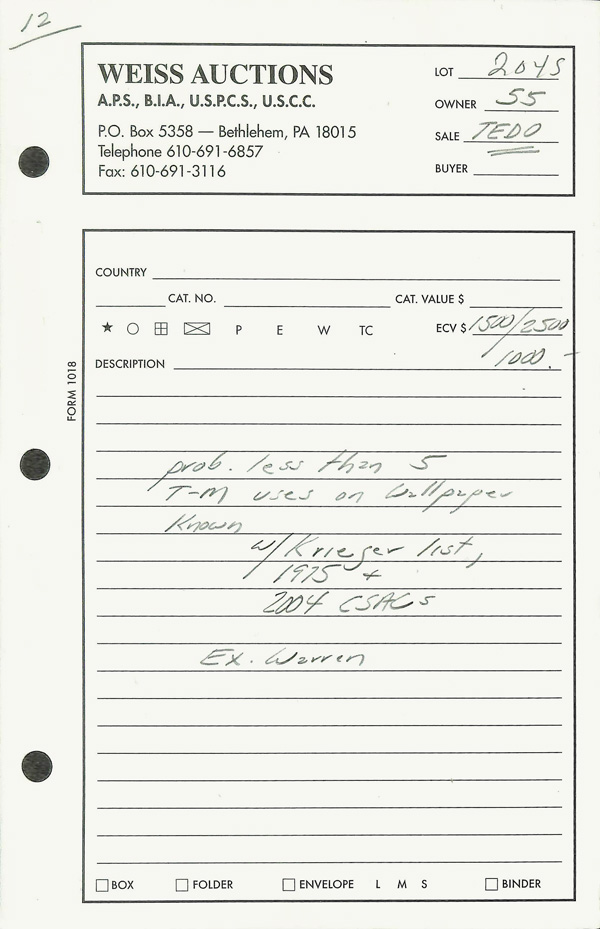 12
WEISS AUCTIONS
A.P.S., B.I.A., U.S.P.C.S., U.S.C.C.
P.O. Box 5358 — Bethlehem, PA 18015
Telephone 610-691-6857
Fax: 610-691-3116
LOT 2045
OWNER 55
SALE TEDO
BUYER
COUNTRY
CAT. NO. CAT. VALUE $
P E W TC ECV $ 1500/2500
1000.-
DESCRIPTION
FORM 1018
prob. less than 5
T-M uses on Wallpaper
Known
w/ Krieger list,
1975 +
2004 CSACs
Ex. Warren
BOX FOLDER ENVELOPE L M S BINDER